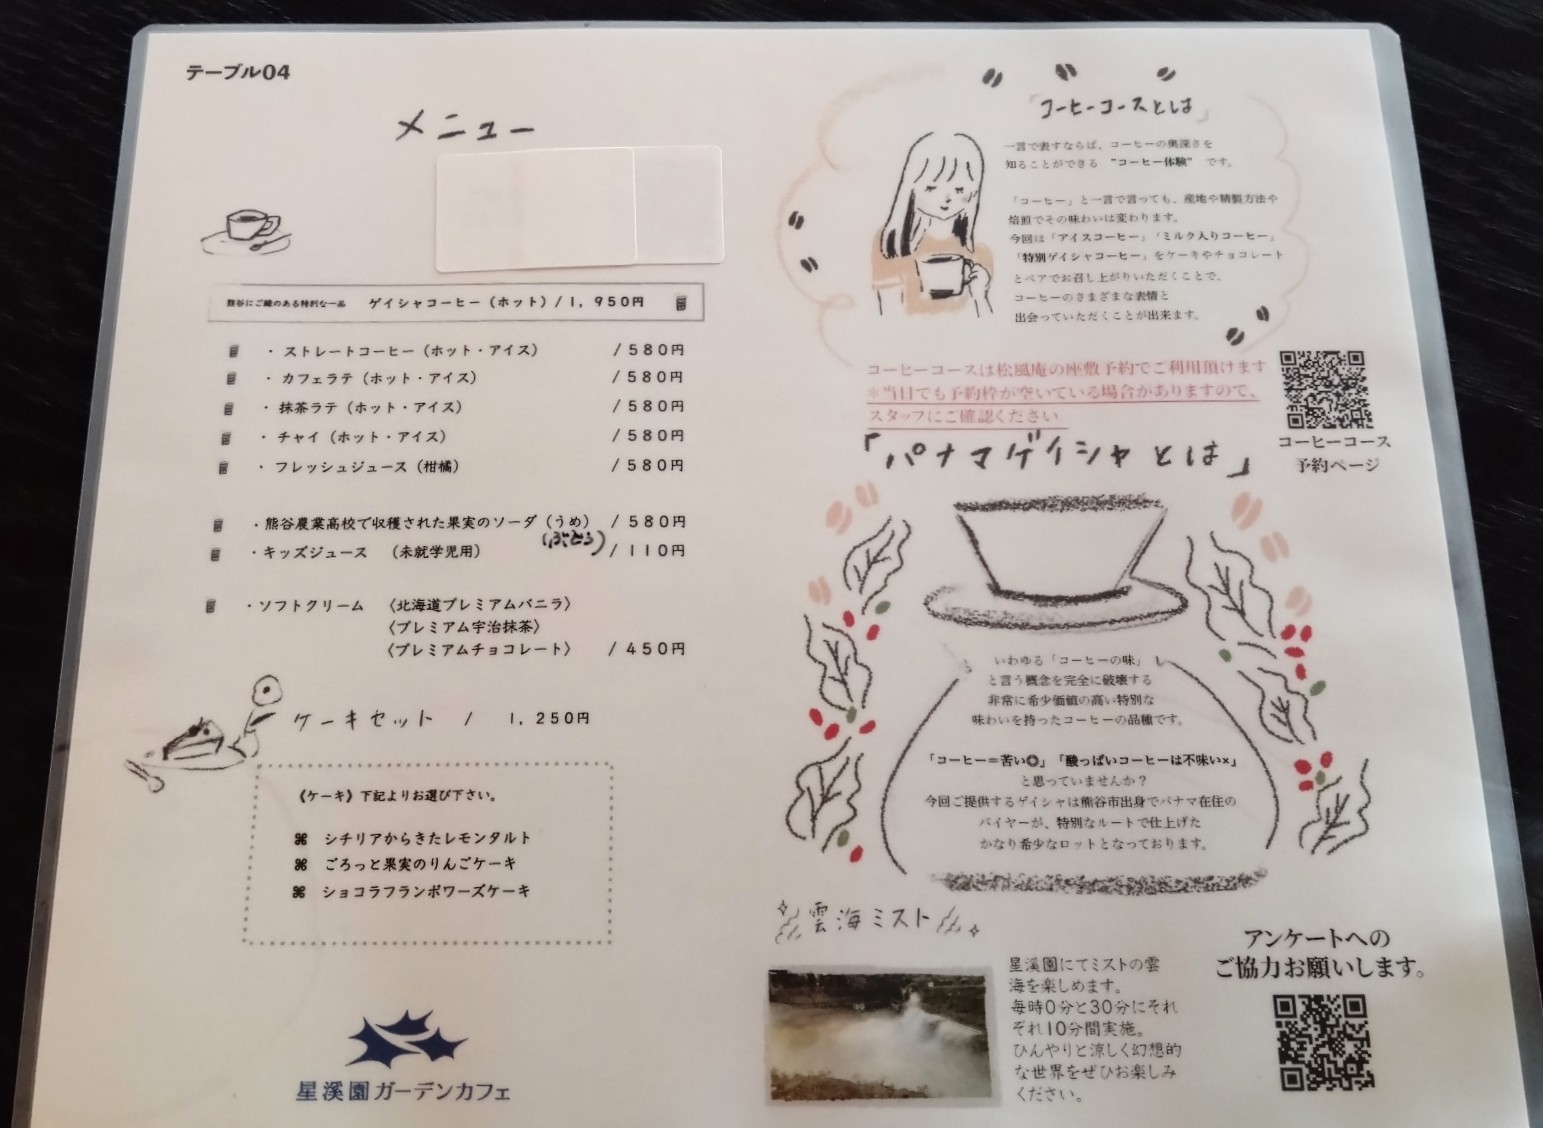 テーブル04
メニュー
熊谷にご縁のある特別な一品 ゲイシャコーヒー（ホット）/1,950円
・ストレートコーヒー（ホット・アイス） /580円
・カフェラテ（ホット・アイス） /580円
・抹茶ラテ（ホット・アイス） /580円
・チャイ（ホット・アイス） /580円
・フレッシュジュース（柑橘） /580円
・熊谷農業高校で収穫された果実のソーダ（うめ） /580円
(ぶどう)
・キッズジュース （未就学児用） /110円
・ソフトクリーム 〈北海道プレミアムバニラ〉
〈プレミアム宇治抹茶〉
〈プレミアムチョコレート〉 /450円
ケーキセット / 1,250円
《ケーキ》下記よりお選び下さい。
⌘ シチリアからきたレモンタルト
⌘ ごろっと果実のりんごケーキ
⌘ ショコラフランボワーズケーキ
星溪園ガーデンカフェ
「コーヒーコースとは」
一言で表すならば、コーヒーの奥深さを
知ることができる "コーヒー体験" です。
「コーヒー」と一言で言っても、産地や精製方法や
焙煎でその味わいは変わります。
今回は「アイスコーヒー」「ミルク入りコーヒー」
「特別ゲイシャコーヒー」をケーキやチョコレート
とペアでお召し上がりいただくことで、
コーヒーのさまざまな表情と
出会っていただくことが出来ます。
コーヒーコースは松風庵の座敷予約でご利用頂けます
※当日でも予約枠が空いている場合がありますので、
スタッフにご確認ください
コーヒーコース
予約ページ
「パナマゲイシャとは」
いわゆる「コーヒーの味」
と言う概念を完全に破壊する
非常に希少価値の高い特別な
味わいを持ったコーヒーの品種です。
「コーヒー＝苦い◎」「酸っぱいコーヒーは不味い×」
と思っていませんか？
今回ご提供するゲイシャは熊谷市出身でパナマ在住の
バイヤーが、特別なルートで仕上げた
かなり希少なロットとなっております。
雲海ミスト
星溪園にてミストの雲
海を楽しめます。
毎時0分と30分にそれ
ぞれ10分間実施。
ひんやりと涼しく幻想的
な世界をぜひお楽しみ
ください。
アンケートへの
ご協力お願いします。